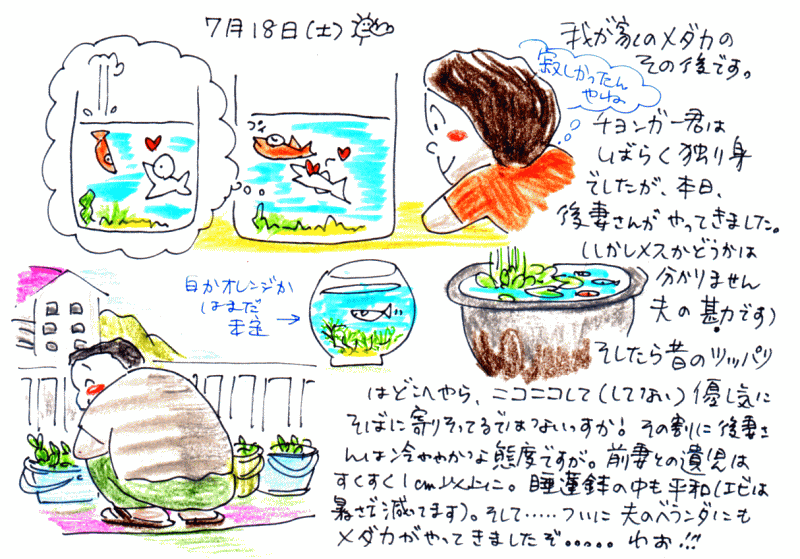 7月18日(土)
我が家のメダカの
その後です。
寂しかったん
やね
チョンガー君は
しばらく独り身
でしたが、本日、
後妻さんがやってきました。
(しかしメスかどうかは
分かりません
夫の勘です)
そしたら昔のツッパリ
はどこへやら、ニコニコして(してない)優し気に
そばに寄りそってるではないっすか!その割に後妻さ
んは冷ややかな態度ですが。前妻との遺児は
すくすく1cm以上に。睡蓮鉢の中も平和(エビは
暑さで減ってます)。そして……ついに夫のベランダにも
メダカがやってきましたぞ……わお!!!
白かオレンジか
はまだ
未定
ツン